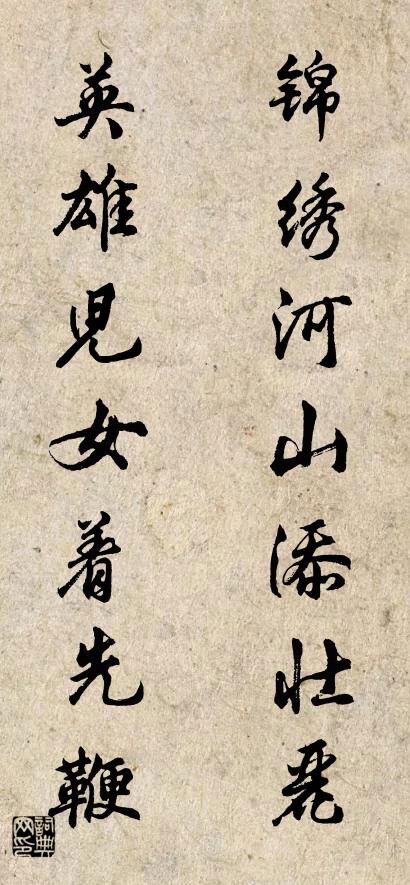 锦绣河山添壮丽
英雄児女着先鞭
詞典
网印